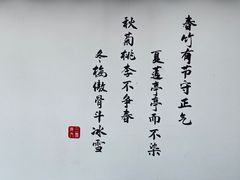 春竹有节守正气
夏莲亭亭而不染
秋菊桃李不争春
冬梅傲骨斗冰雪